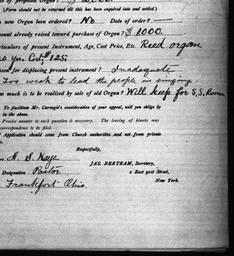 (Form should not be returned till this has been enquired into and settled.)
new Organ been ordered? No Date of order?
amount already raised toward purchase of Organ? $1000.
particulars of present Instrument, Age, Cost Price, Etc. Reed organ
20 yrs. Cost $125.
for displacing present instrument? Inadequate
Too weak to lead the people in singing
much is to be realized by sale of old Organ? Will keep for S.S. Room
To facilitate Mr. Carnegie's consideration of your appeal, will you oblige by
in the above.
Precise answer to each question is necessary. The leaving of blanks may
correspondence to be filed.
Application should come from Church authorities and not from private
Respectfully,
JAS. BERTRAM, Secretary,
Designation Pastor 2 East 91st Street,
Frankfort Ohio. New York.